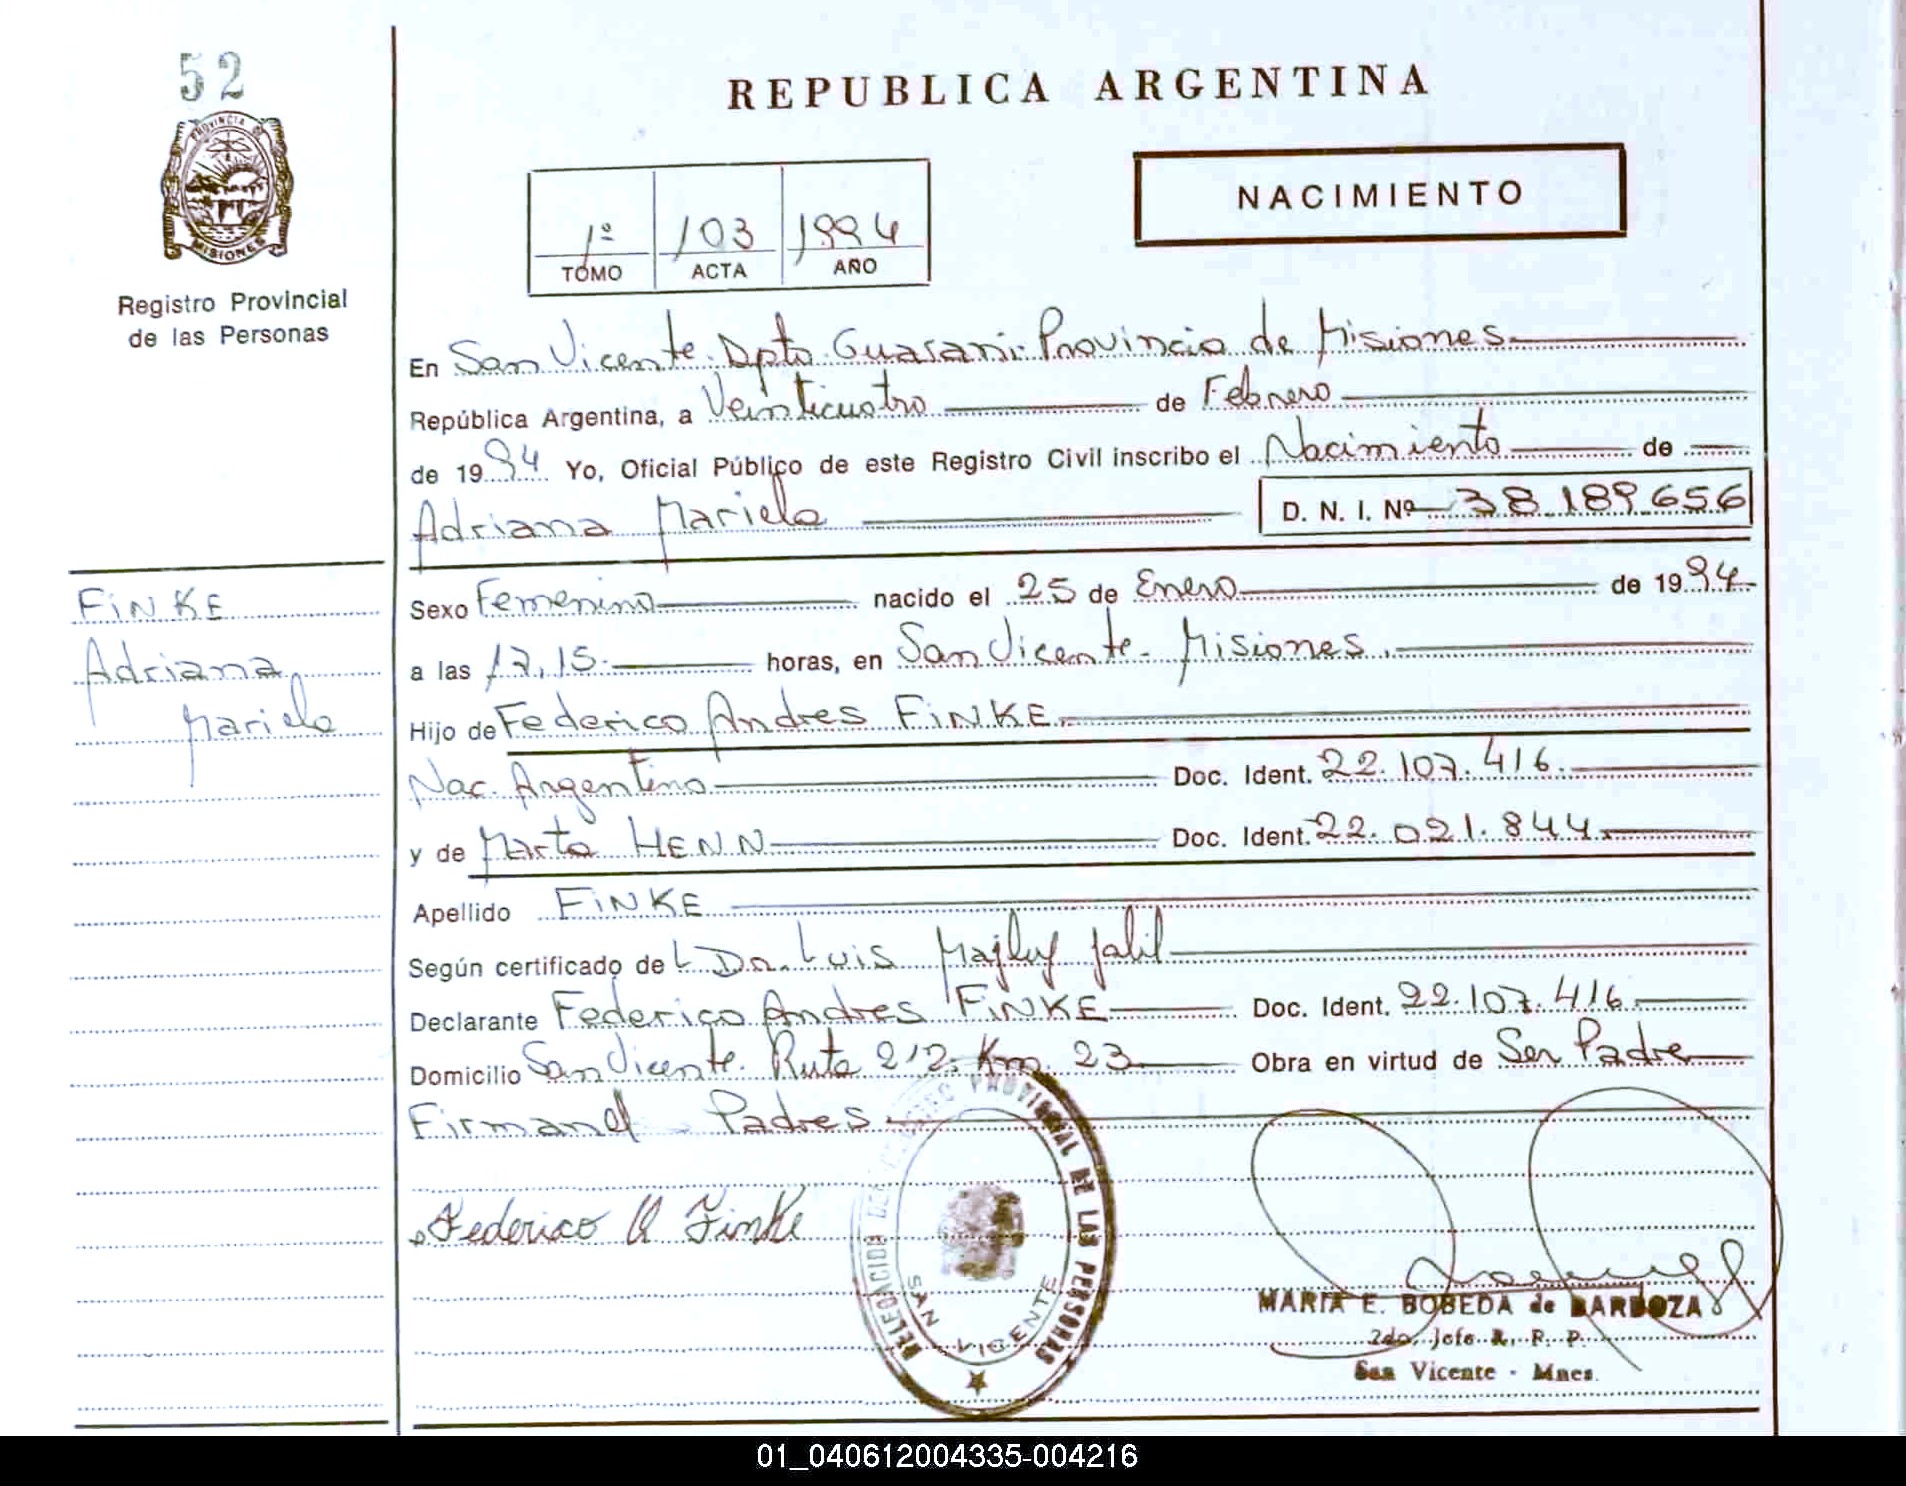 52
PROVINCIA DE
MISIONES
Registro Provincial
de las Personas
REPUBLICA ARGENTINA
NACIMIENTO
1º 103 1994
TOMO ACTA AÑO
En San Vicente. Dpto. Guarani. Provincia de Misiones
República Argentina, a Veinticuatro de Febrero
de 1994 Yo, Oficial Público de este Registro Civil inscribo el Nacimiento de
Adriana Mariela D. N. I. Nº 38.189.656
FINKE
Adriana
Mariela
Sexo Femenino nacido el 25 de Enero de 1994
a las 17,15 horas, en San Vicente. Misiones.
Hijo de Federico Andres FINKE
Nac. Argentino Doc. Ident. 22.107.416.
y de Marta HENN Doc. Ident. 22.021.844
Apellido FINKE
Según certificado del Dr. Luis Majluf Jalil
Declarante Federico Andres FINKE Doc. Ident. 22.107.416.
Domicilio San Vicente. Ruta 212. Km 23 Obra en virtud de Ser Padre
Firman Padres
Federico A Finke
DELEGACION DEL REGISTRO PROVINCIAL DE LAS PERSONAS
SAN VICENTE
MARIA E. BOBEDA de BARBOZA
2do. Jefe R. P. P.
San Vicente - Mnes.
01_040612004335-004216